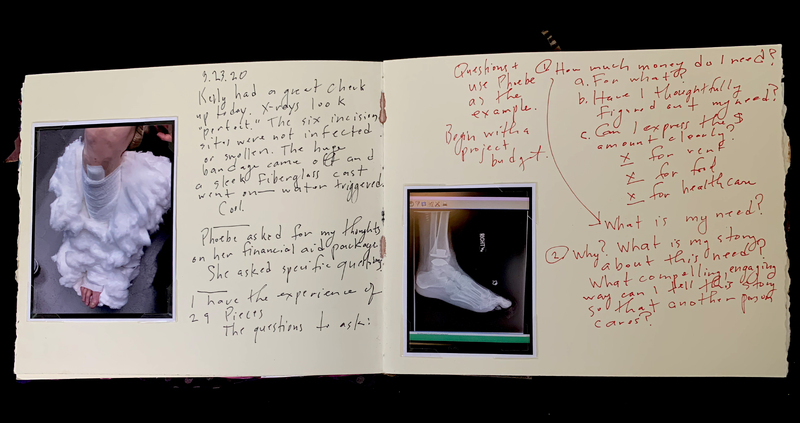 3.23.20
Kelly had a great check
up today. X-rays look
"perfect." The six incision
sites were not infected
or swollen. The huge
bandage came off and
a sleek fiberglass cast
went on — water triggered.
Cool.
Phoebe asked for my thoughts
on her financial aid package
She asked specific questions.
I have the experience of
29 Pieces
The questions to ask:
Questions +
use Phoebe
as the
example.
Begin with a
project
budget.
① How much money do I need?
a. For what?
b. Have I thoughtfully
figured out my need?
c. Can I express the $
amount clearly?
X for rent
X for food
X for healthcare
What is my need?
② Why? What is my story
about this need?
What compelling, engaging
way can I tell this story
so that another person
cares?